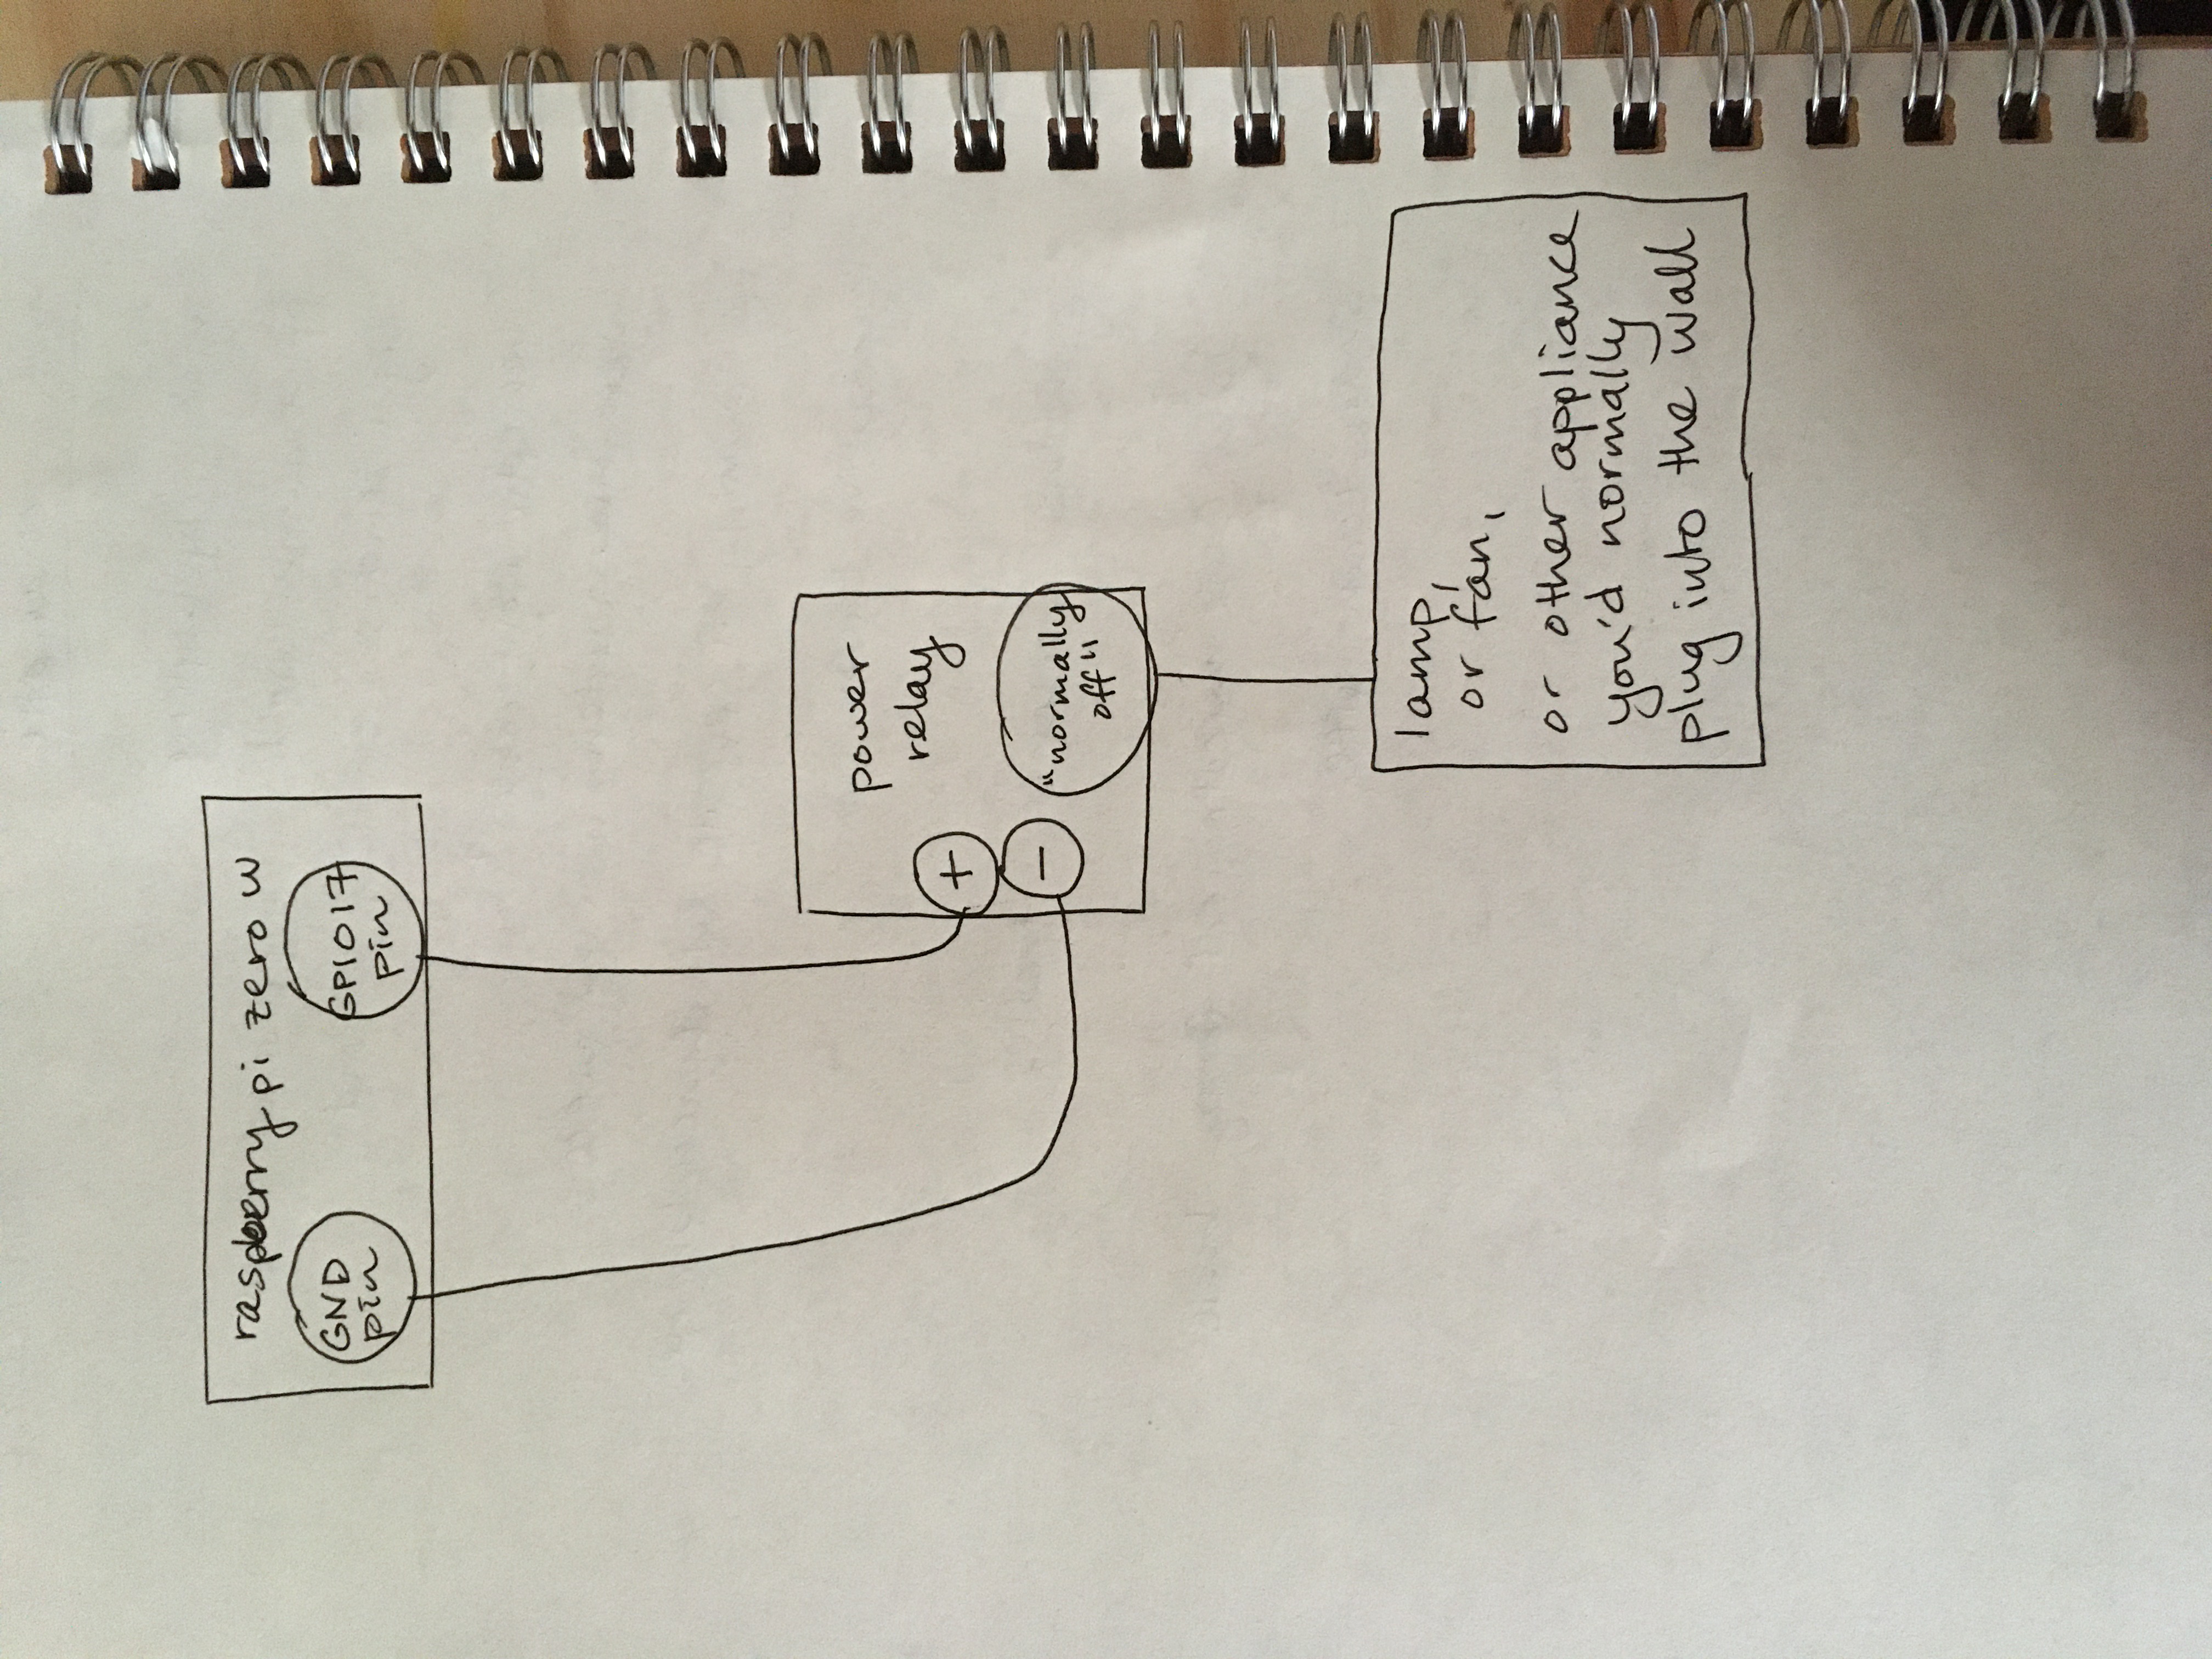 raspberry pi zero w
GND
pin
GPIO17
pin
power
relay
+
-
"normally
off"
lamp,
or fan,
or other appliance
you'd normally
plug into the wall